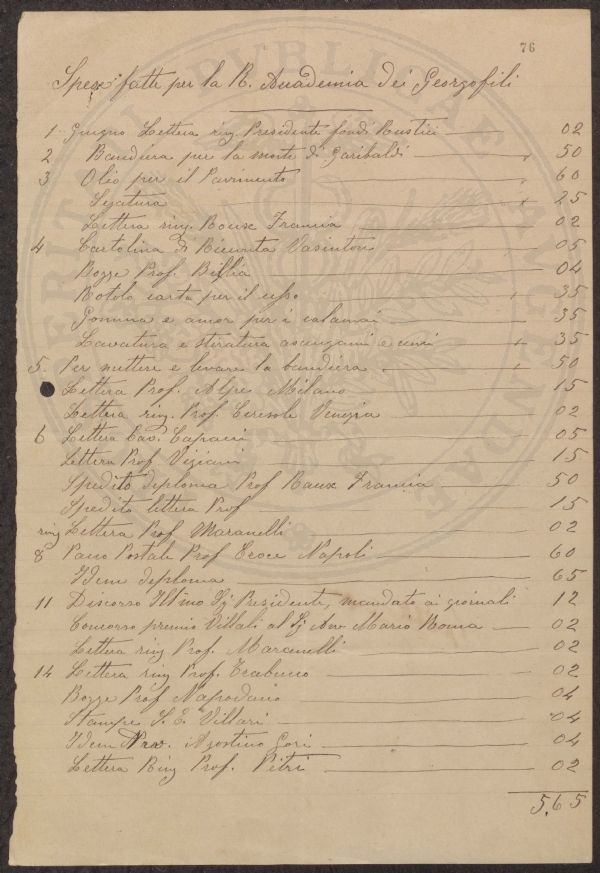 76
Spese fatte per la R. Accademia dei Georgofili
1 Giugno Lettera ring Presidente fondi Rustici 02
2 Bandiera per la morte di Garibaldi 50
3 Olio per il Pavimento 60
Segatura 25
Lettera ring. Roux Francia 02
4 Cartolina di Ricevuta 05
Bozze Prof. Billia 04
Rotolo carta per il cesso 35
Gomma e per i calamai 35
Lavatura e stiratura asciugami e 35
5. Per mettere e levare la bandiera 50
Lettera Prof. Milano 15
Lettera ring. Prof. Ceresole Venezia 02
6 Lettera Cav. Capacci 05
Lettera Prof Viziani 15
Spedito diploma Prof Raux Francia 50
Spedito lettera Prof 15
ring Lettera Prof. Maranelli 02
8 Pacco Postale Prof Croce Napoli 60
Idem diploma 65
11 Discorso Illmo Sig Presidente, mandato ai giornali 12
Concorso premio Villari al Sig Avv Mario Roma 02
Lettera ring Prof. Marcinelli 02
14 Lettera ring Prof. 02
Bozze Prof Napodano 04
Stampe S. E. Villari 04
Idem Agostino Gori 04
Lettera Ring Prof. Pitri 02
5,65